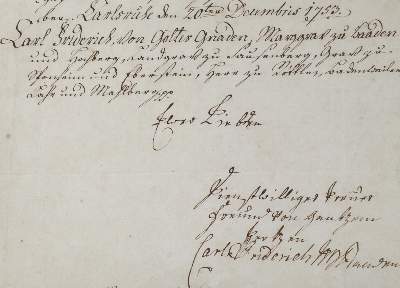 ben. Carlsruhe den 20ten Decembris 1753.
Carl Friderich, von Gottes Gnaden, Marggrav zu Baaden
und Hochberg, Landgrav zu Sausenberg, Grav zu
Sponheim und Eberstein, Herr zu Röttlen, Badenweiler
Lahr und Mahlberg pp
Ewer Liebden
Dienstwilliger treuer
von gantzem
Hertzen
Carl Friderich M Baaden